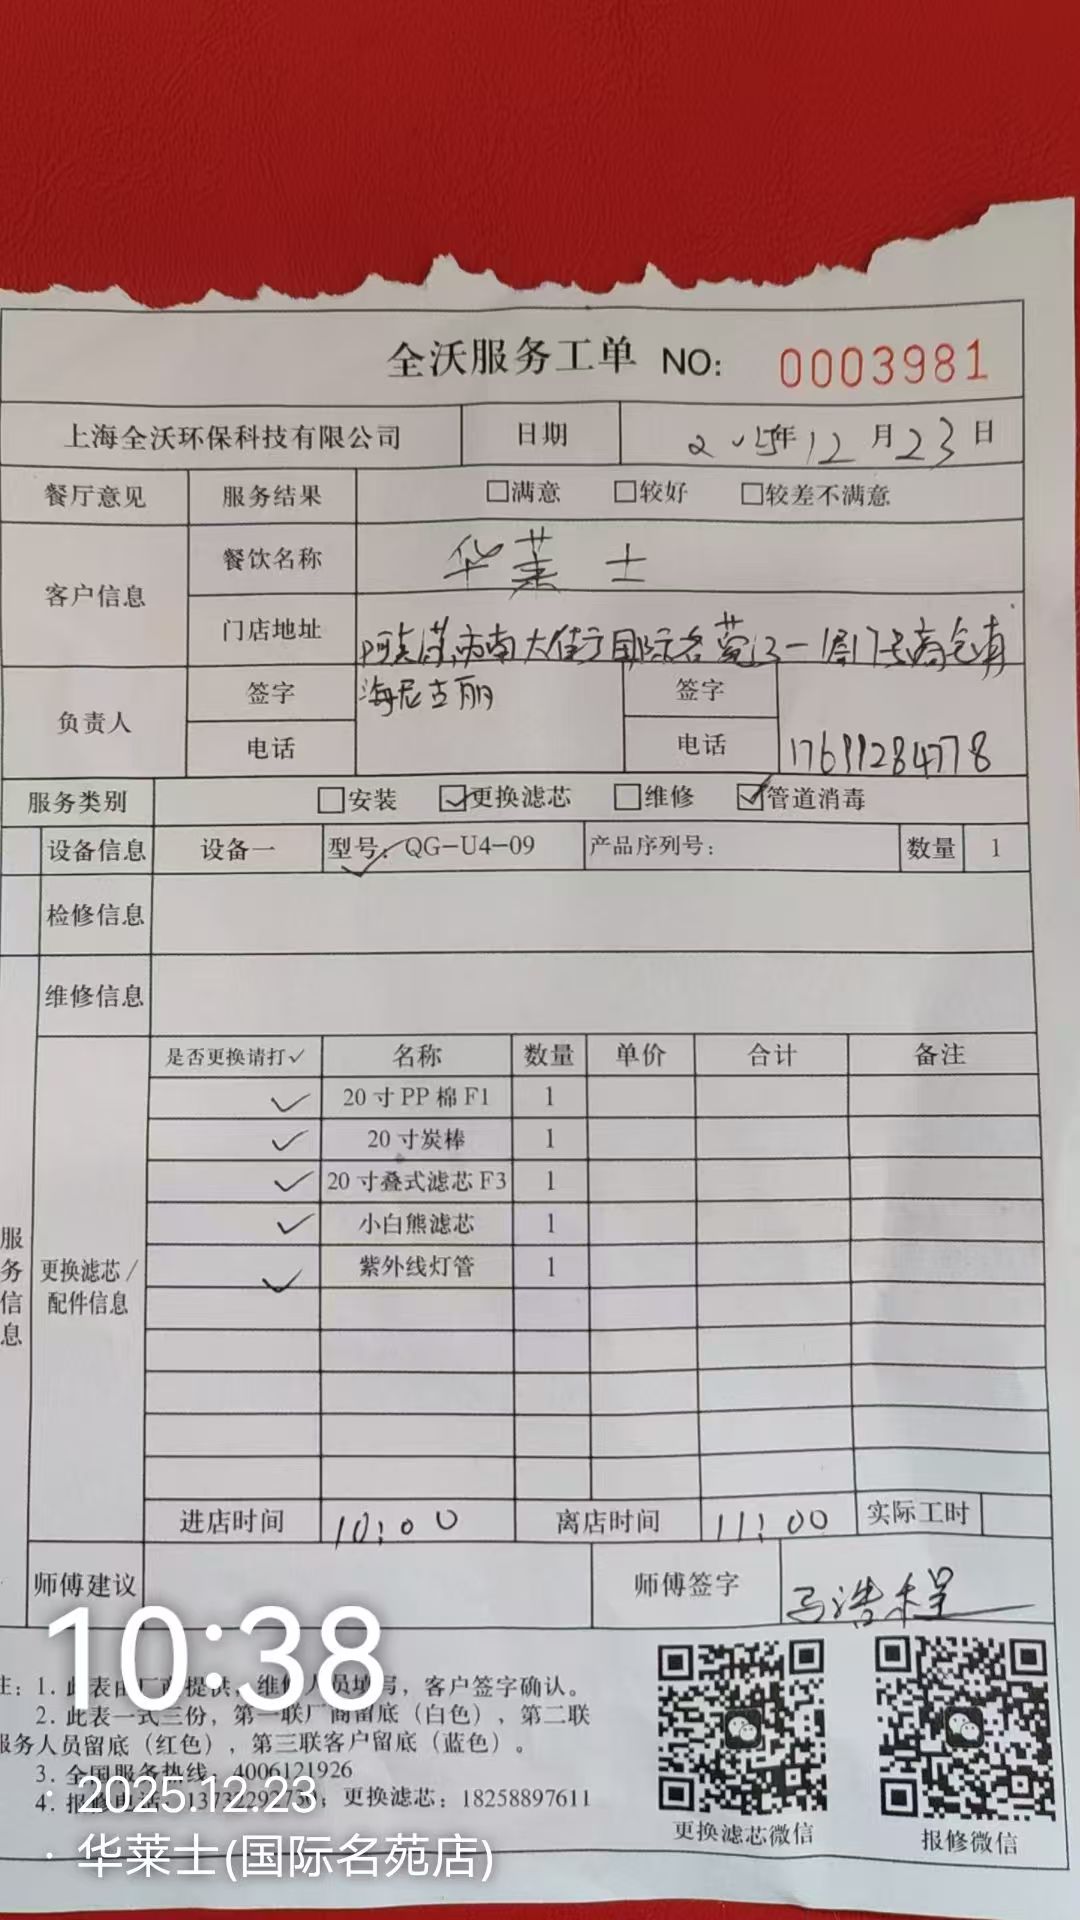 全沃服务工单 NO: 0003981
上海全沃环保科技有限公司 日期 2025年12月23日
餐厅意见 服务结果 □满意 □较好 □较差不满意
客户信息 餐饮名称 华莱士
门店地址 南大街 国际名苑 一层
负责人 签字 海尼古丽 签字
电话 电话 17699284778
服务类别 □安装 ☑更换滤芯 □维修 ☑管道消毒
设备信息 设备一 型号: QG-U4-09 产品序列号: 数量 1
检修信息
维修信息
服务信息
更换滤芯/配件信息
是否更换请打✓ 名称 数量 单价 合计 备注
✓ 20寸PP棉F1 1
✓ 20寸炭棒 1
✓ 20寸叠式滤芯F3 1
✓ 小白熊滤芯 1
✓ 紫外线灯管 1
进店时间 10:00 离店时间 11:00 实际工时
师傅建议 师傅签字 马浩程
10:38
注: 1. 此表由厂商提供, 维修人员填写, 客户签字确认。
2. 此表一式三份, 第一联厂商留底(白色), 第二联
服务人员留底(红色), 第三联客户留底(蓝色)。
3. 全国服务热线: 4006121926
4. 报修电话: 更换滤芯: 18258897611
2025.12.23
· 华莱士(国际名苑店)
更换滤芯微信 报修微信